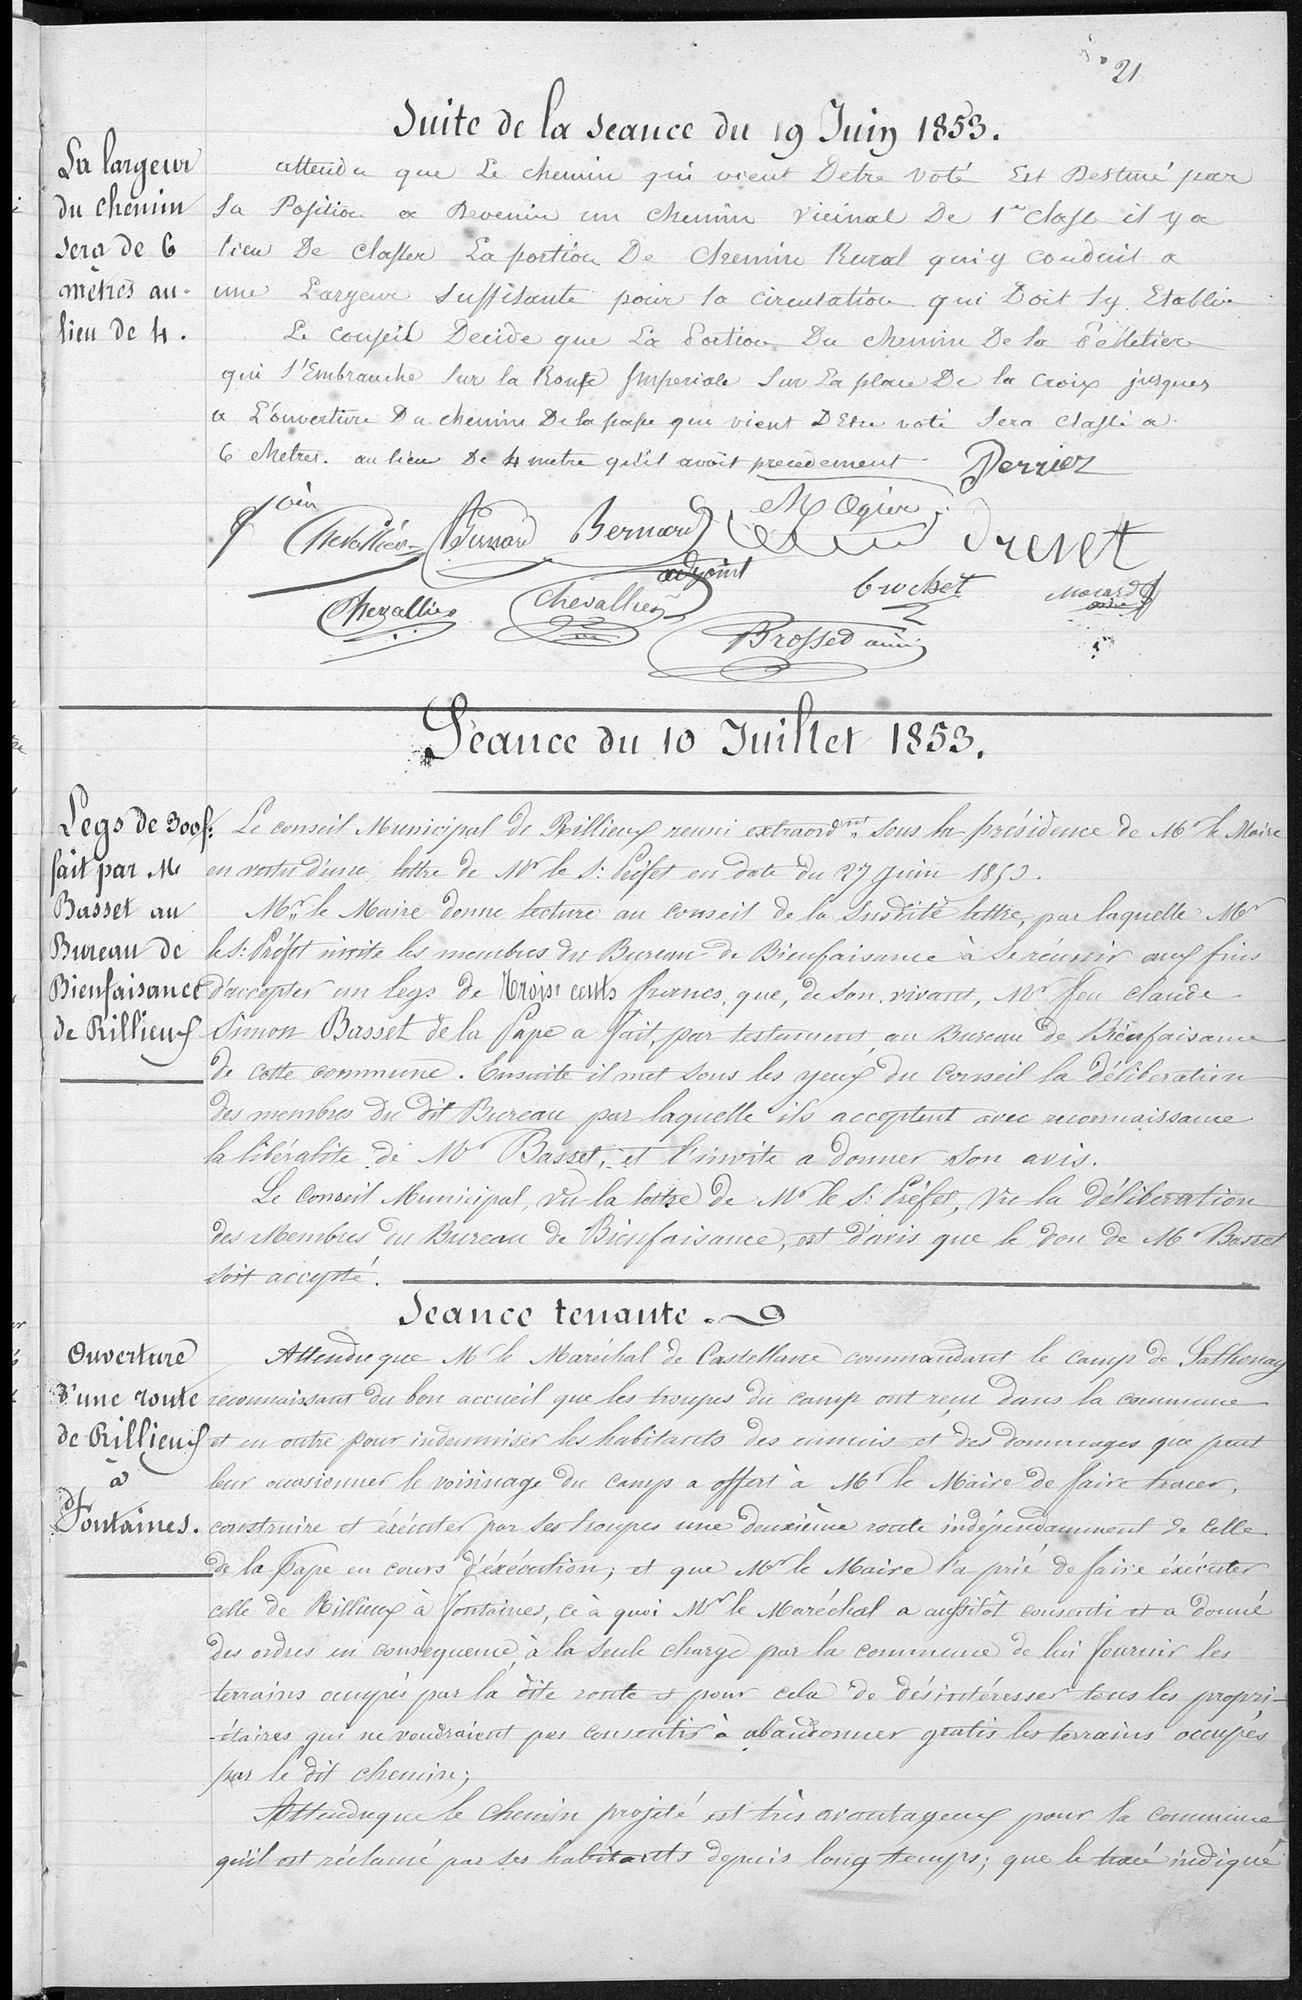 21
Suite de la seance du 19 Juin 1853.
La largeur
du chemin
sera de 6
mètres au-
lieu de 4.
attendu que Le chemin qui vient Detre Voté Est Destiné par
Sa Position a Devenir un chemin vicinal De 1re Classe il y a
lieu De Classer La portion De Chemin Rural qui y conduit a
une Largeur suffisante pour la circulation qui Doit Sy Etablir
Le conseil Decide que La Portion Du chemin De la Pelletier
qui S'Embranche Sur la Route Imperiale Sur La place De la Croix jusques
a L'ouverture Du chemin De la pape qui vient DEtre voté Sera Classé a
6 Metres. au lieu De 4 metre qu'il avoit precedement
Perrier
Chevallier
Bernard
adjoint
M Ogier
Drevet
Chevallier
Chevallier
Crochet
Brossed ainé
Séance du 10 Juillet 1853.
Legs de 300f.
fait par Mr
Basset au
Bureau de
Bienfaisance
de Rillieux
Le conseil Municipal de Rillieux reuni extraordnt. Sous la présidence de Mr le Maire
en vertu d'une lettre de Mr le S: Préfet en date du 27 juin 1853.
Mr. le Maire donne lecture au conseil de la Susdite lettre, par laquelle Mr
le S: Préfet invite les membres du Bureau de Bienfaisance à se réunir aux fins
d'accepter un legs de trois cents francs, que, de son vivant, Mr feu claude
Simon Basset de la Pape a fait, par testament, au Bureau de Bienfaisance
de cette commune. Ensuite il met sous les yeux du Conseil la déliberation
des membres du dit Bureau par laquelle ils acceptent avec reconnaissance
la libéralite de Mr Basset, et l'invite a donner son avis.
Le Conseil Municipal, Vu la lettre de Mr le S: Préfet, Vu la délibération
des Membres du Bureau de Bienfaisance, est d'avis que le don de Mr Basset
soit accepté.
Seance tenante.
Ouverture
d'une route
de Rillieux
à
Fontaines.
Attendu que Mr le Maréchal de Castellane commandant le camp de Sathonay
reconnaissant du bon accueil que les troupes du camp ont reçu dans la commune
et en outre pour indemniser les habitants des ennuis et des dommages que peut
leur occasionner le voisinage du camp a offert à Mr le Maire de faire tracer,
construire et éxécuter par ses troupes une deuxième route indépendamment de celle
de la Pape en cours d'éxécution; et que Mr le Maire l'a prié de faire éxécuter
celle de Rillieux à fontaines, ce à quoi Mr le Maréchal a aussitôt consenti et a donné
des ordres en consequence, à la seule charge par la commune de lui fournir les
terrains occupés par la dite route et pour cela de désintéresser tous les propri-
-étaires qui ne voudraient pas consentir à abandonner gratis les terrains occupés
par le dit chemin;
Attendu que le chemin projeté est très avantageux pour la commune
qu'il est réclamé par ses habitants depuis long temps; que le tracé indiqué